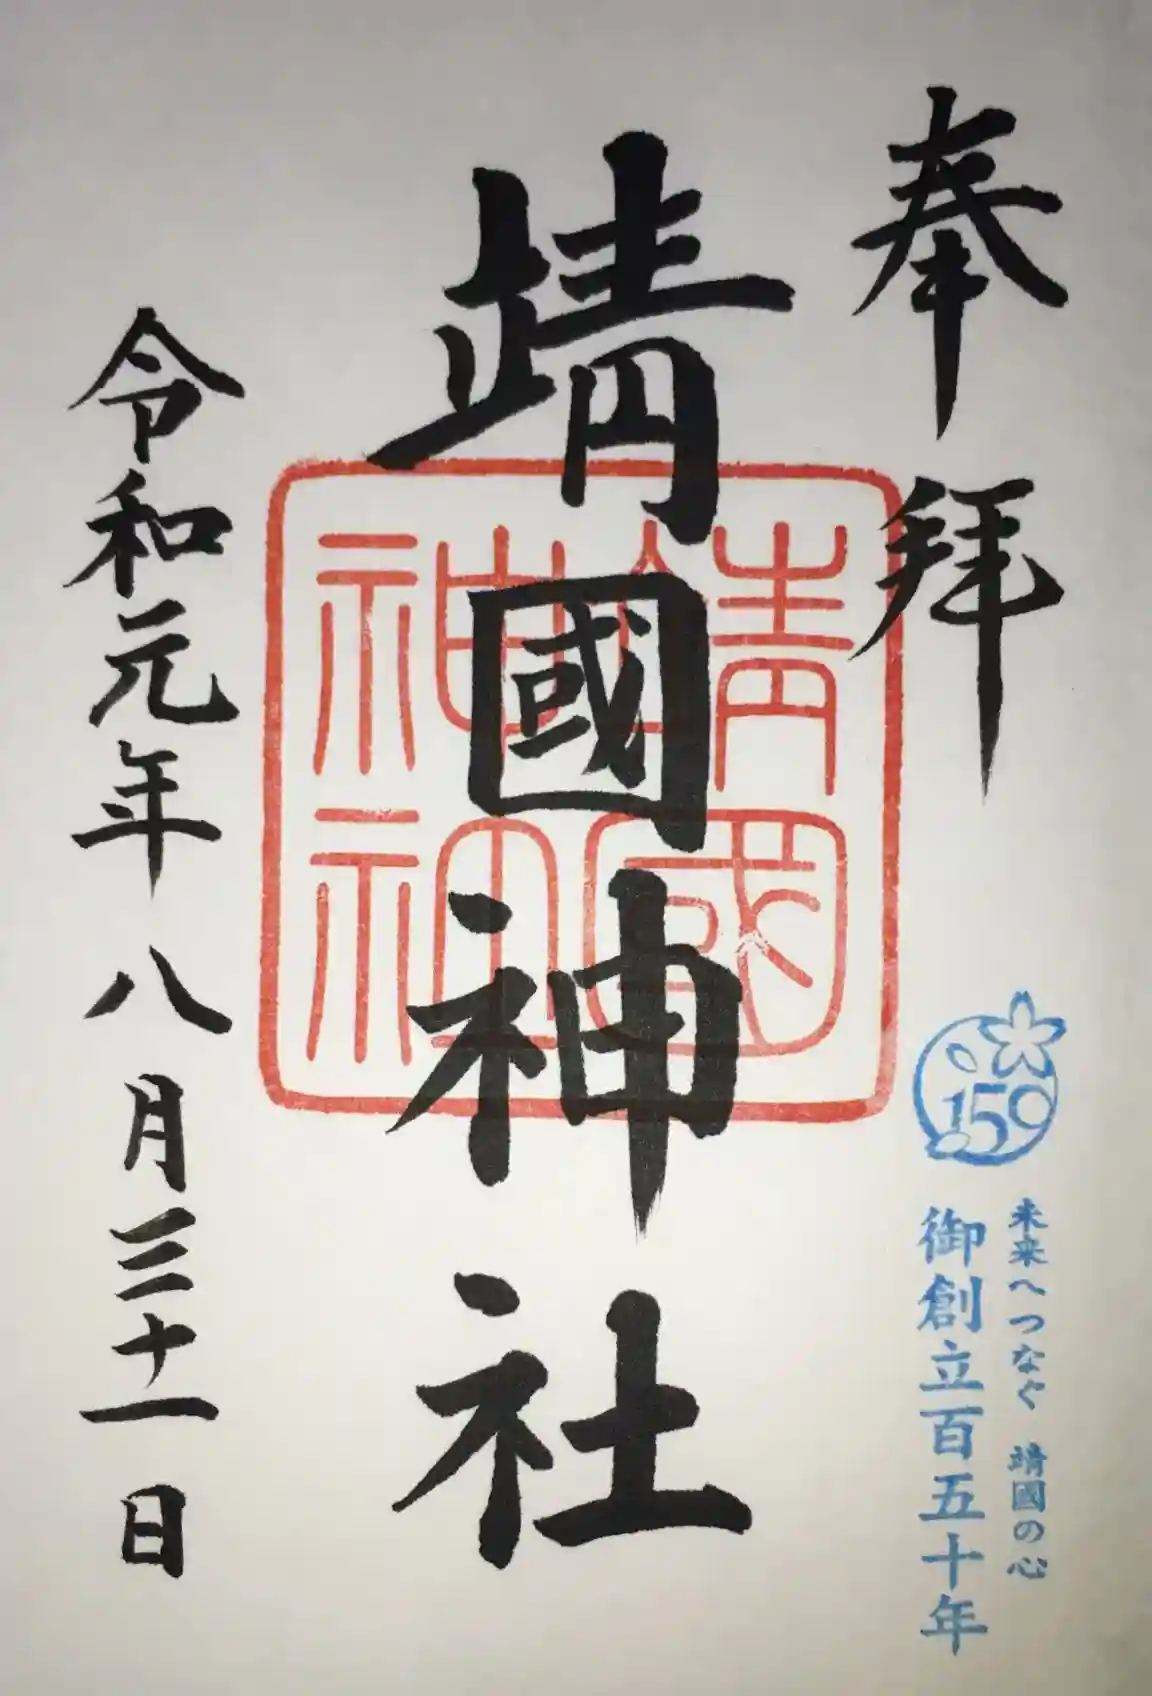 奉拝
靖國神社
靖國
神社
令和元年八月三十一日
150
未来へつなぐ 靖國の心
御創立百五十年